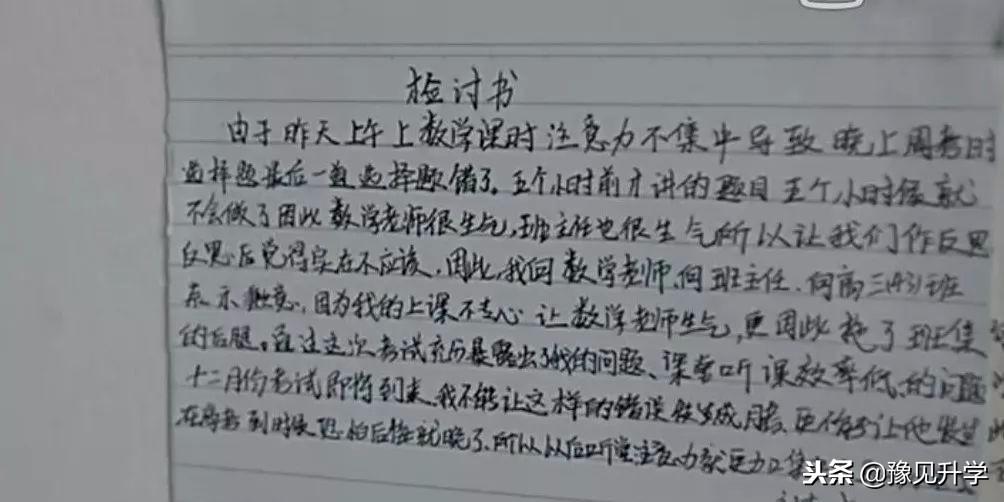 检讨书
由于昨天上午上数学课时注意力不集中导致晚上周考时
选择题最后一道选择题错了。五个小时前才讲的题目五个小时候就
不会做了因此数学老师很生气,班主任也很生气所以让我们作反思
反思后觉得实在不应该,因此,我向数学老师、向班主任、向高三(43)班
表示歉意,因为我的上课不专心让数学老师生气,更因此拖了班集
的后腿。通过这次考试充分暴露出了我的问题、课堂听课效率低的问题
十二月份考试即将到来,我不能让这样的错误 更 让他发生
在高考到时候恐怕后悔就晚了,所以以后听课注意力就更加集
头条 @豫见升学